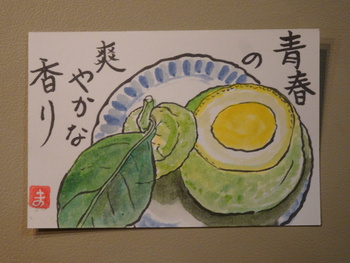 青春
の
爽
やかな
香り
ま